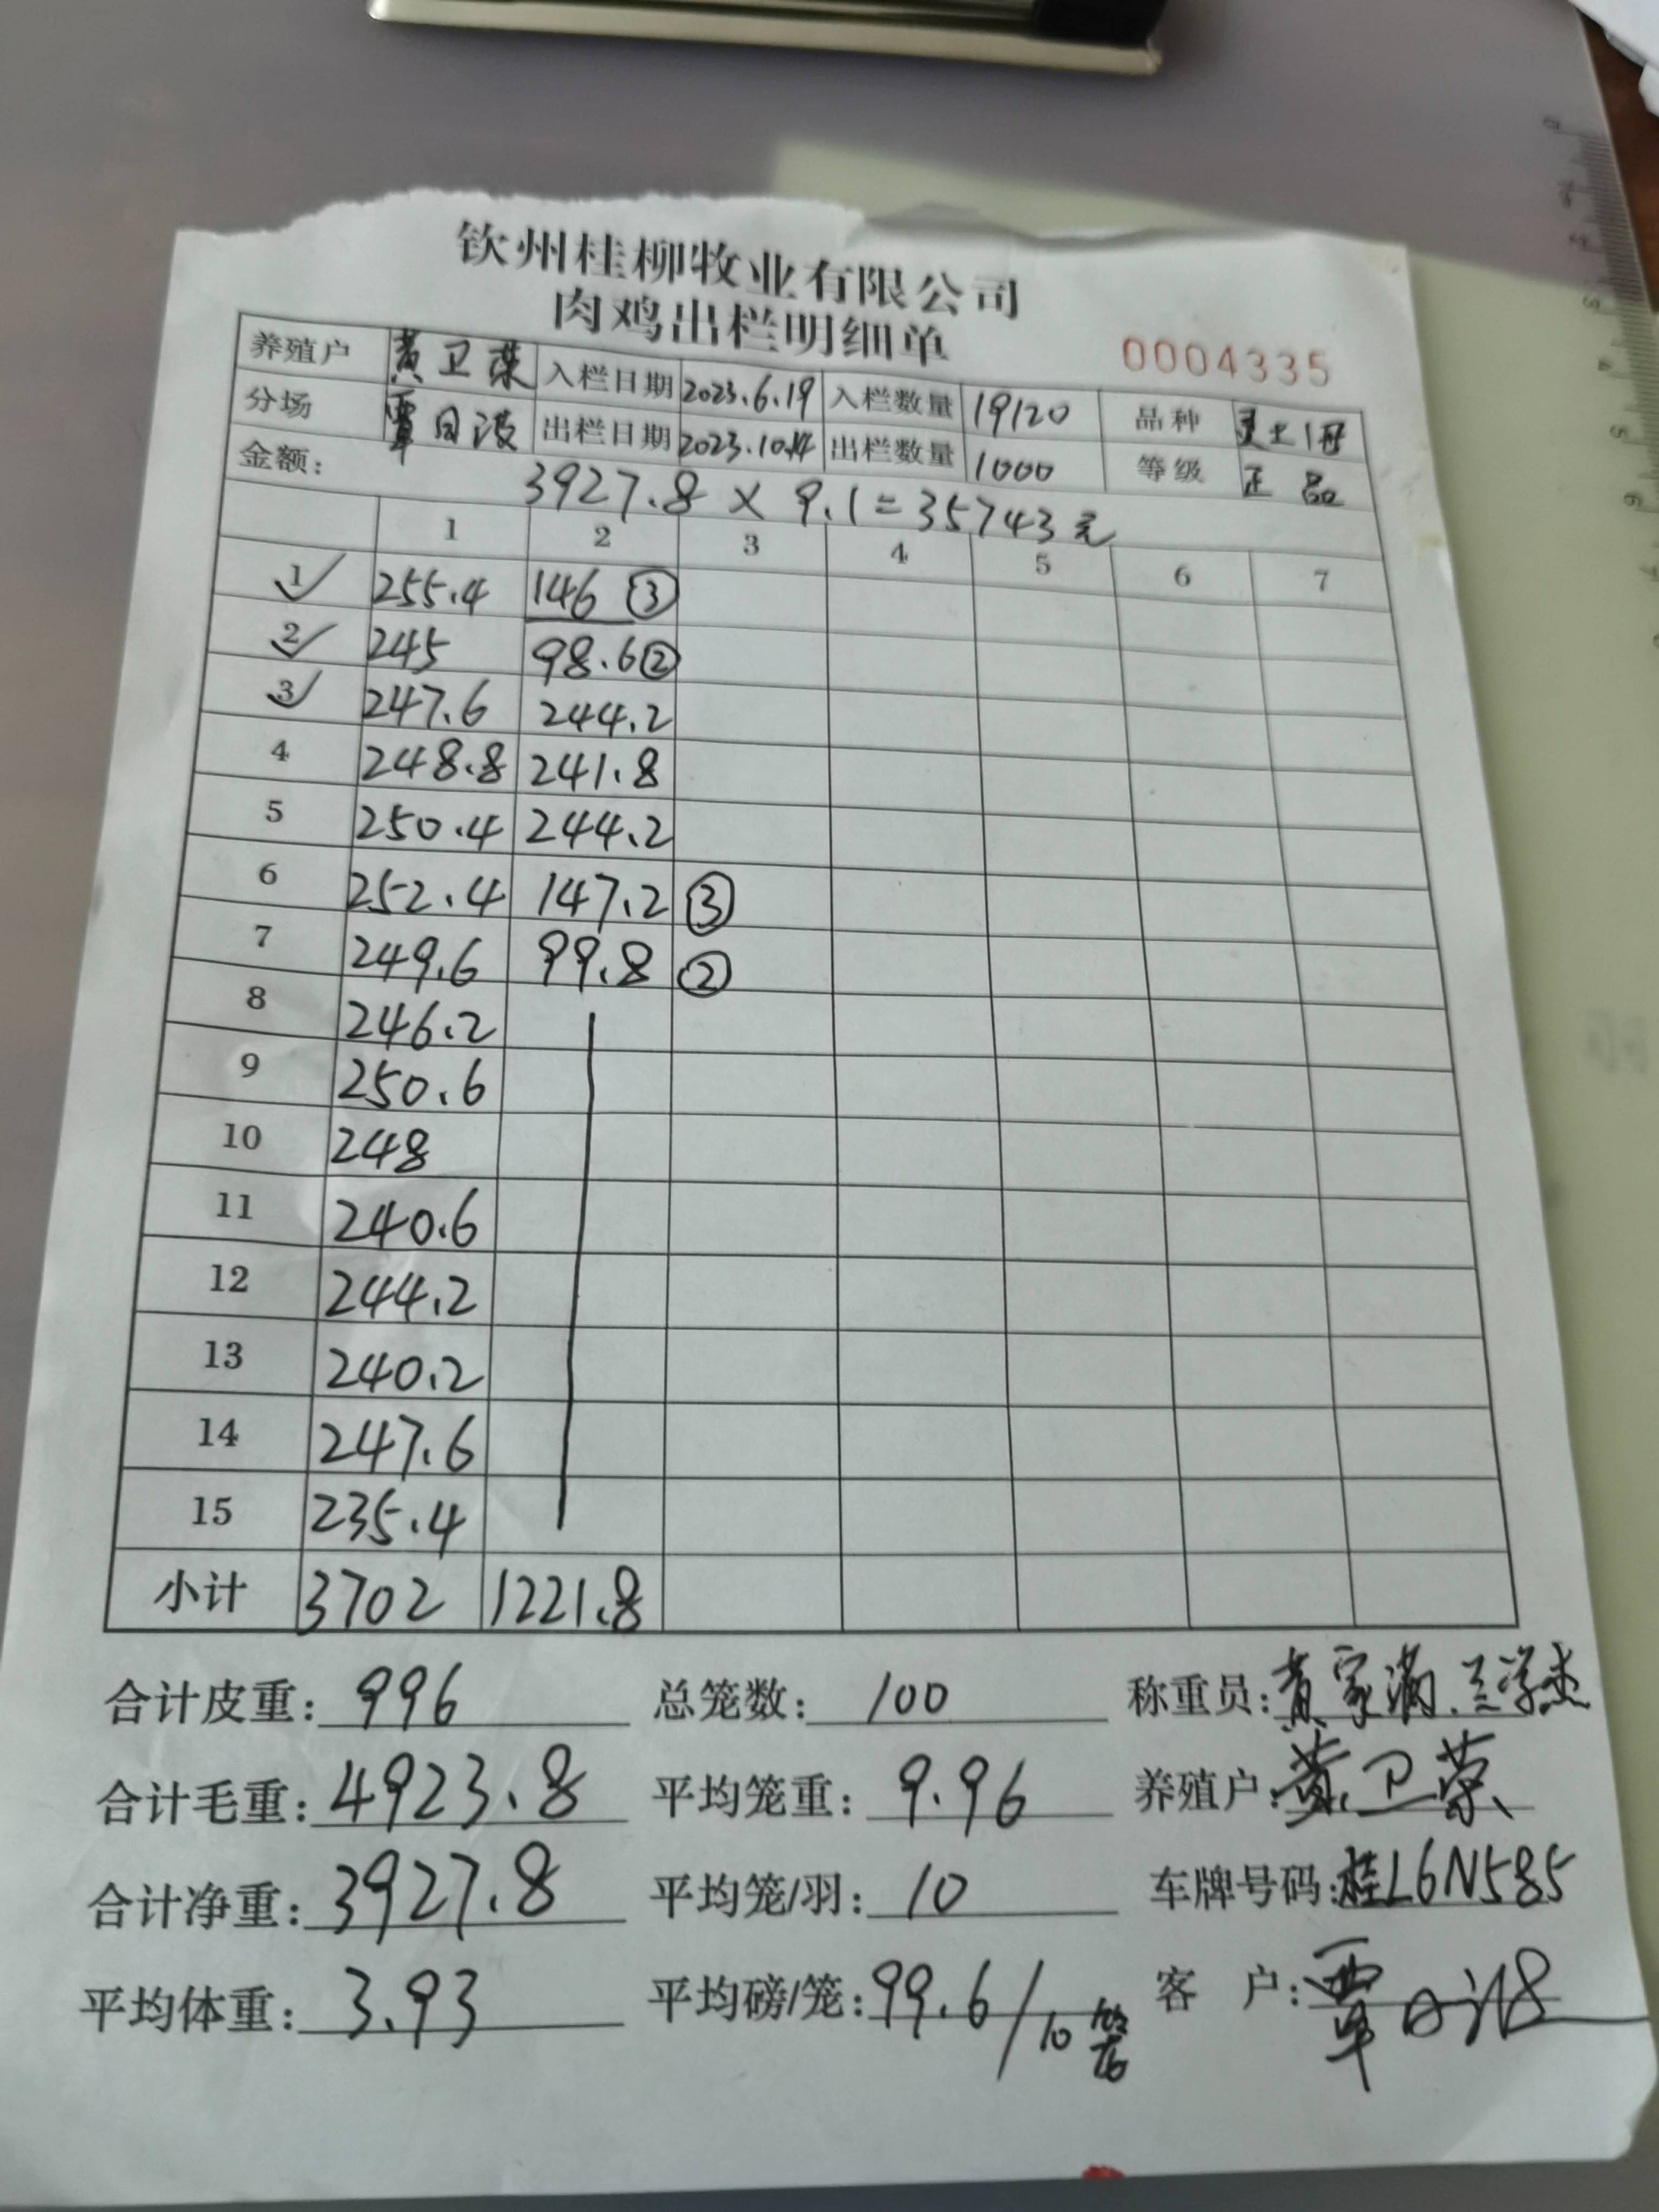 钦州桂柳牧业有限公司
肉鸡出栏明细单
0004335
养殖户 黄卫荣 入栏日期 2023.6.19 入栏数量 19120 品种
分场 覃日波 出栏日期 2023.10.14 出栏数量 1000 等级 正品
金额: 3927.8 × 9.1 = 35743元
1 2 3 4 5 6 7
1 ✓ 255.4 146 ③
2 ✓ 245 98.6 ②
3 ✓ 247.6 244.2
4 248.8 241.8
5 250.4 244.2
6 252.4 147.2 ③
7 249.6 99.8 ②
8 246.2
9 250.6
10 248
11 240.6
12 244.2
13 240.2
14 247.6
15 235.4
小计 3702 1221.8
合计皮重: 996 总笼数: 100 称重员: 黄家满.兰学杰
合计毛重: 4923.8 平均笼重: 9.96 养殖户: 黄卫荣
合计净重: 3927.8 平均笼/羽: 10 车牌号码: 桂L6N585
平均体重: 3.93 平均磅/笼: 99.6/10 客 户: 覃日波